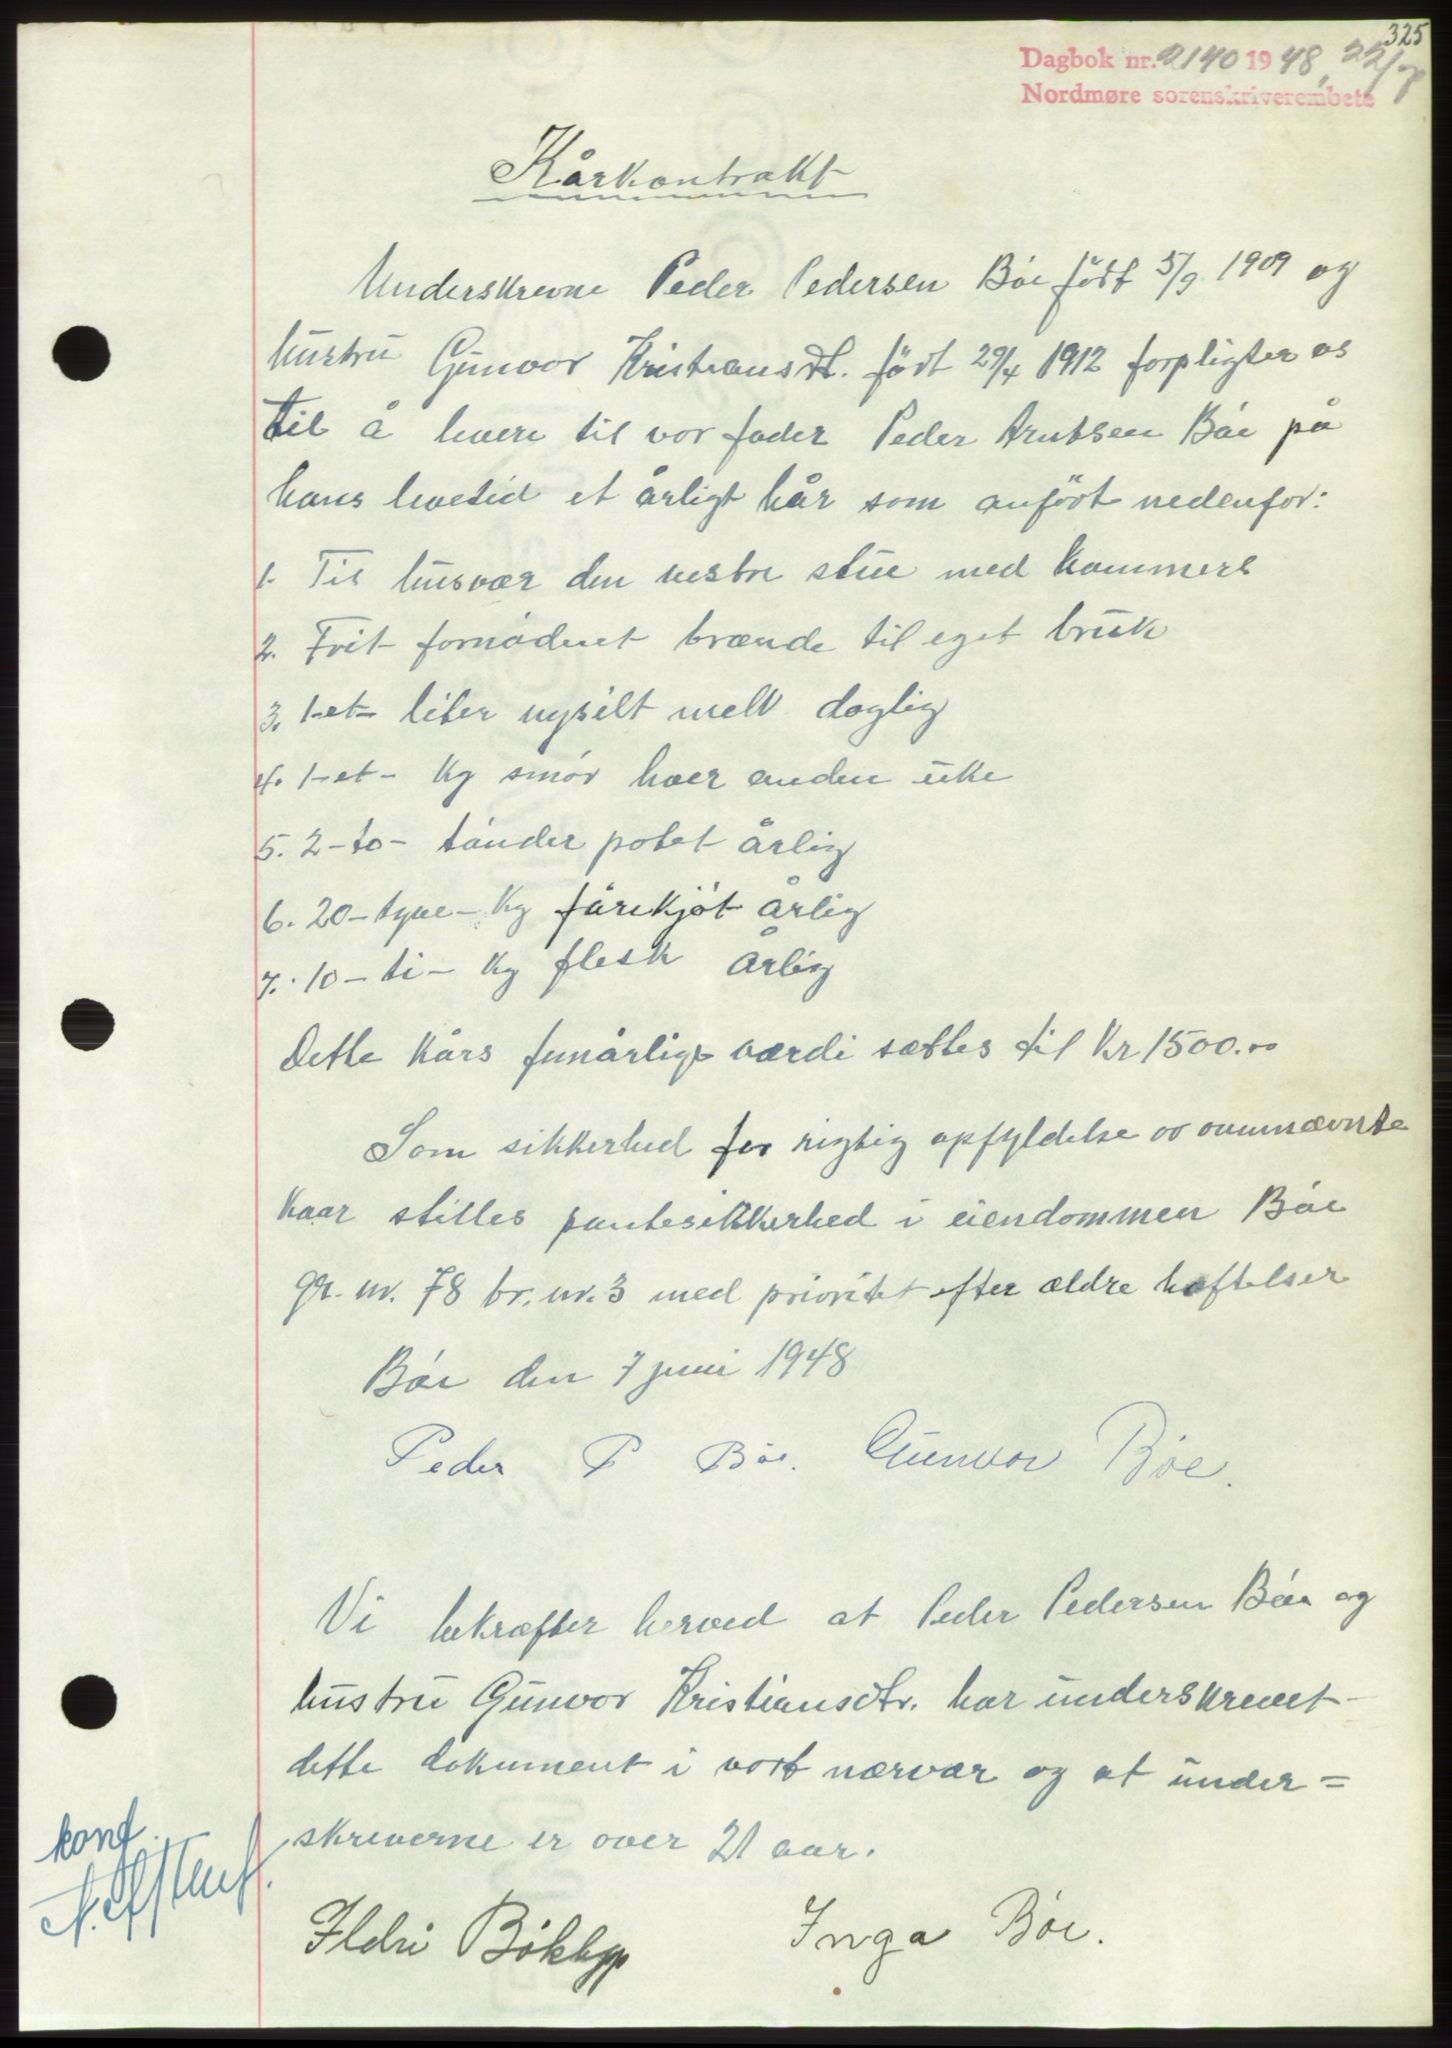 325
Dagbok nr. 2140 1948, 22/7
Nordmøre sorenskriverembete
Kårkontrakt
Underskrevne Peder Pedersen Böe född 5/9 1909 og
hustru Gunvor Kristiansdt. födt 29/4 1912 forpligter os
til å levere til vor fader Peder Arntsen Böe på
hans levetid et årligt kår som anfört nedenfor:
1. Til husvær den vestre stue med kammers
2. Frit fornödent brænde til eget bruk
3. 1-et- liter nysilt melk daglig
4. 1-et- kg smör hver anden uke
5. 2-to- tönder potet årlig
6. 20-tyve- kg fårekjöt årlig
7. 10-ti- kg flesk årlig
Dette kårs femårlige værdi sættes til kr 1500.00
Som sikkerhed for rigtig opfyldelse av ovennævnte
kaar stilles pantesikkerhed i eiendommen Böe
gr. nr. 78 br. nr. 3 med prioritet efter ældre heftelser
Böe den 7 juni 1948
Peder P Böe. Gunvor Böe.
Vi bekræfter herved at Peder Pedersen Böe og
hustru Gunvor Kristiansdtr. har underskrevet
dette dokument i vort nærvær og at under=
skriverne er over 21 aar.
konf.
Ildri Böklepp Inga Böe.